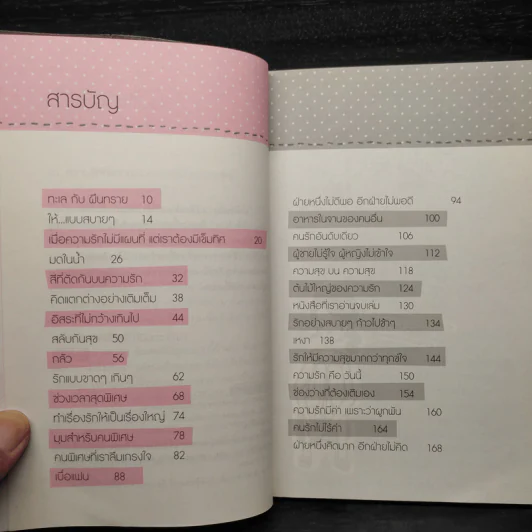 สารบัญ
ทะเล กับ ผืนทราย 10
ให้...แบบสบายๆ 14
เมื่อความรักไม่มีแผนที่ แต่เราต้องมีเข็มทิศ 20
มดในน้ำ 26
สีที่ตัดกันบนความรัก 32
คิดแตกต่างอย่างเติมเต็ม 38
อิสระที่ไม่กว้างเกินไป 44
สลับกันสุข 50
กลัว 56
รักแบบขาดๆ เกินๆ 62
ช่วงเวลาสุดพิเศษ 68
ทำเรื่องรักให้เป็นเรื่องใหญ่ 74
มุมสำหรับคนพิเศษ 78
คนพิเศษที่เราลืมเกรงใจ 82
เบื่อแฟน 88
ฝ่ายหนึ่งไม่ดีพอ อีกฝ่ายไม่พอดี 94
อาหารในจานของคนอื่น 100
คนรักอันดับเดียว 106
ผู้ชายไม่รู้ใจ ผู้หญิงไม่เข้าใจ 112
ความสุข บน ความสุข 118
ต้นไม้ใหญ่ของความรัก 124
หนังสือที่เราอ่านจบเล่ม 130
รักอย่างสบายๆ ก้าวไปช้าๆ 134
เหงา 138
รักให้มีความสุขมากกว่าทุกข์ใจ 144
ความรัก คือ วันนี้ 150
ช่องว่างที่ต้องเติมเอง 154
ความรักมีค่า เพราะว่าผูกพัน 160
คนรักไม่ไร้ค่า 164
ฝ่ายหนึ่งคิดมาก อีกฝ่ายไม่คิด 168